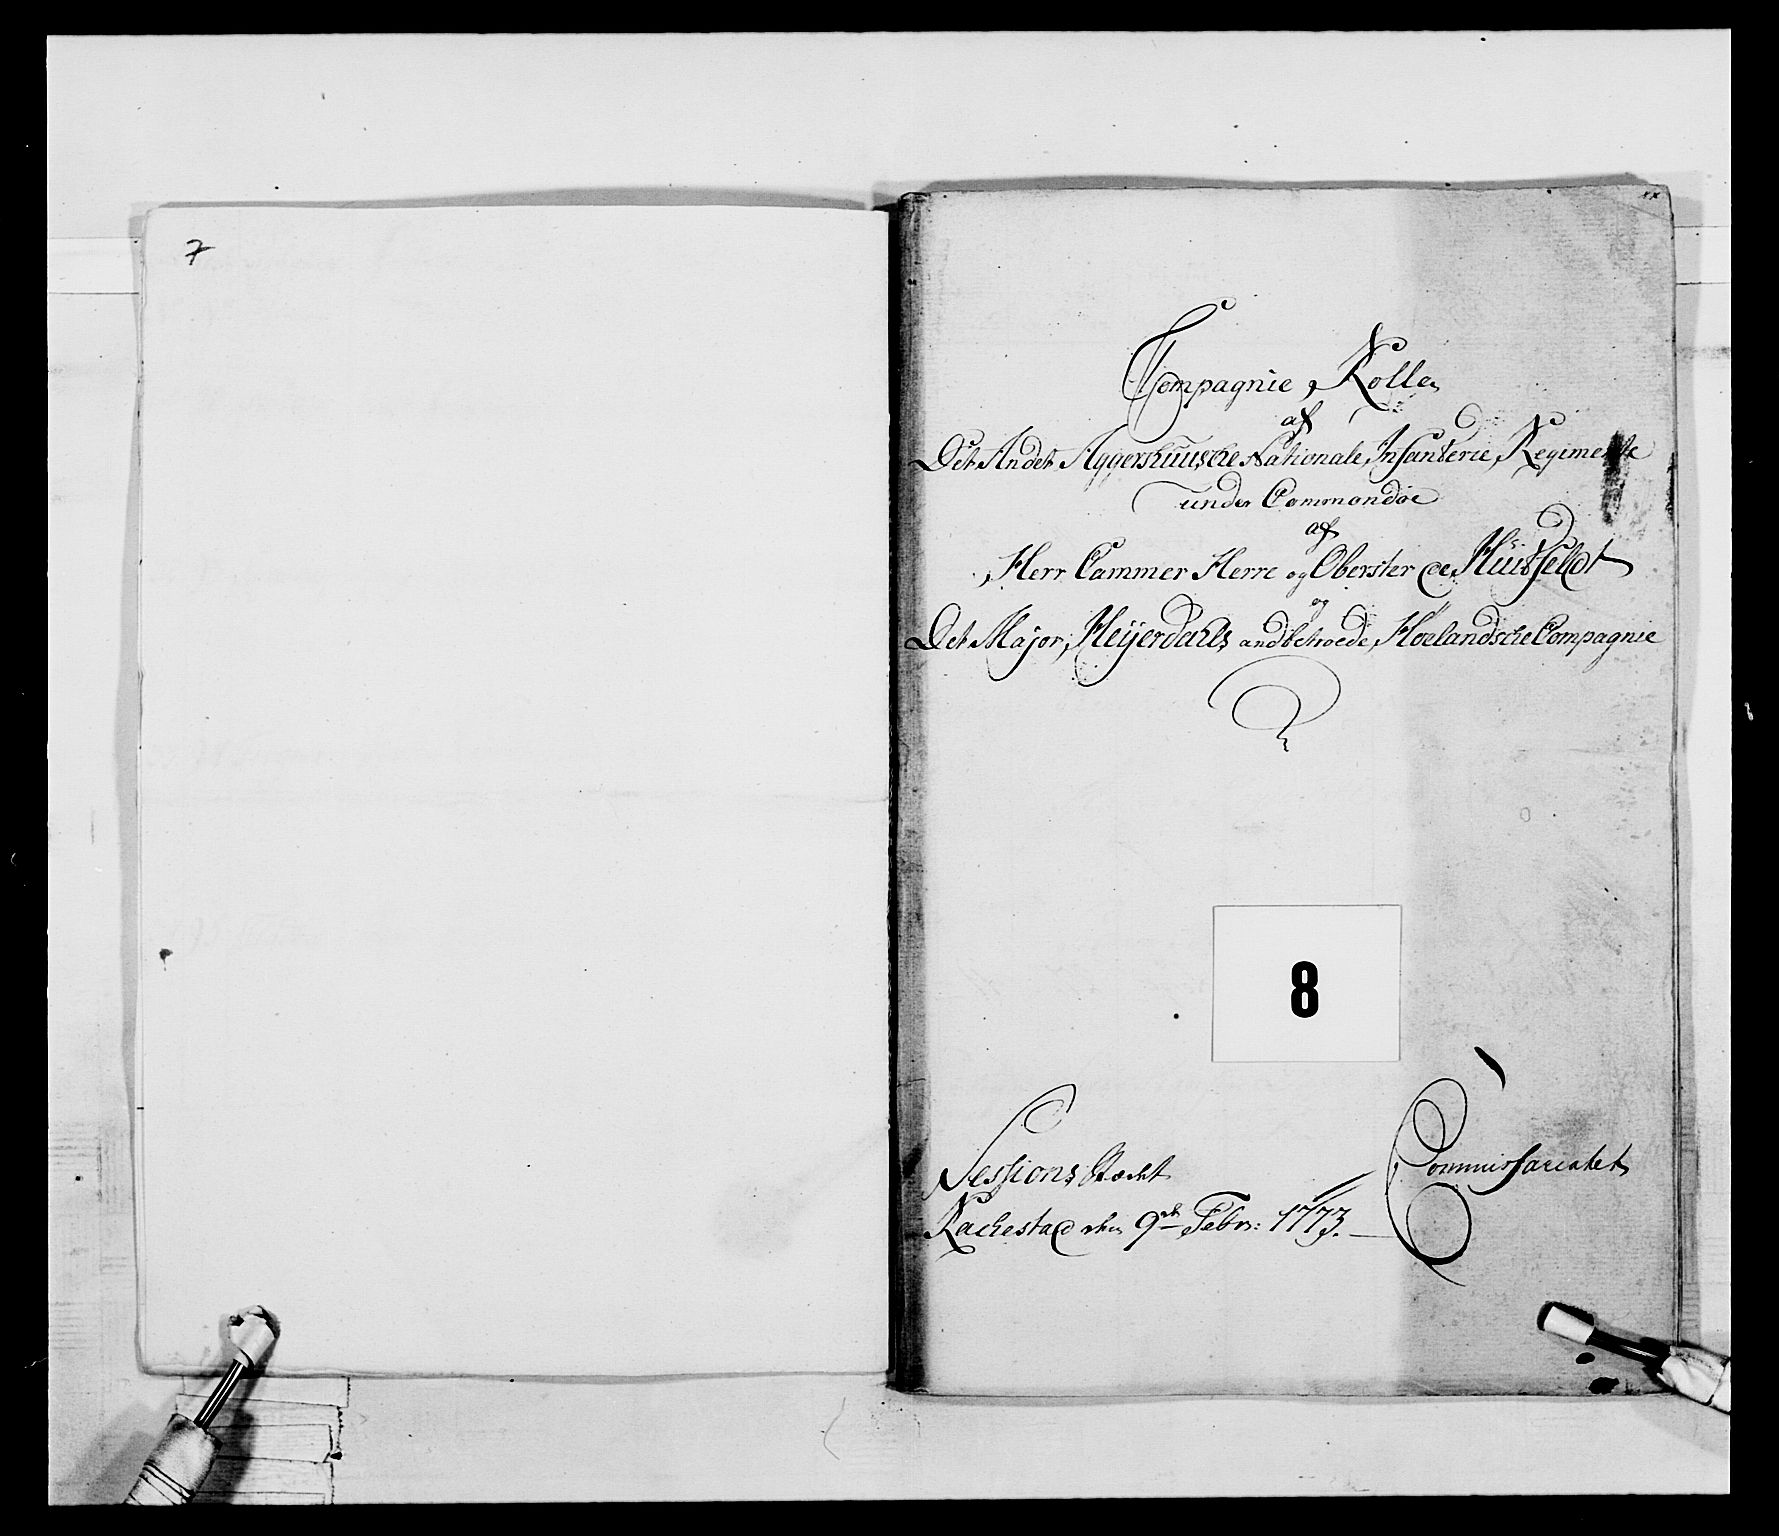 7
Compagnie Rolle
af
Det Andet Aggershuusche Nationale Infanterie Regimente
under Commandoe
af
Herr Cammer Herre og Oberster de Huitfeldt
og
Det Major Heijerdahls andbetroede Hoelandsche Compagnie
8
Sessions Rœcht
Rachestad den 9de Febr: 1773.
Commissariatet